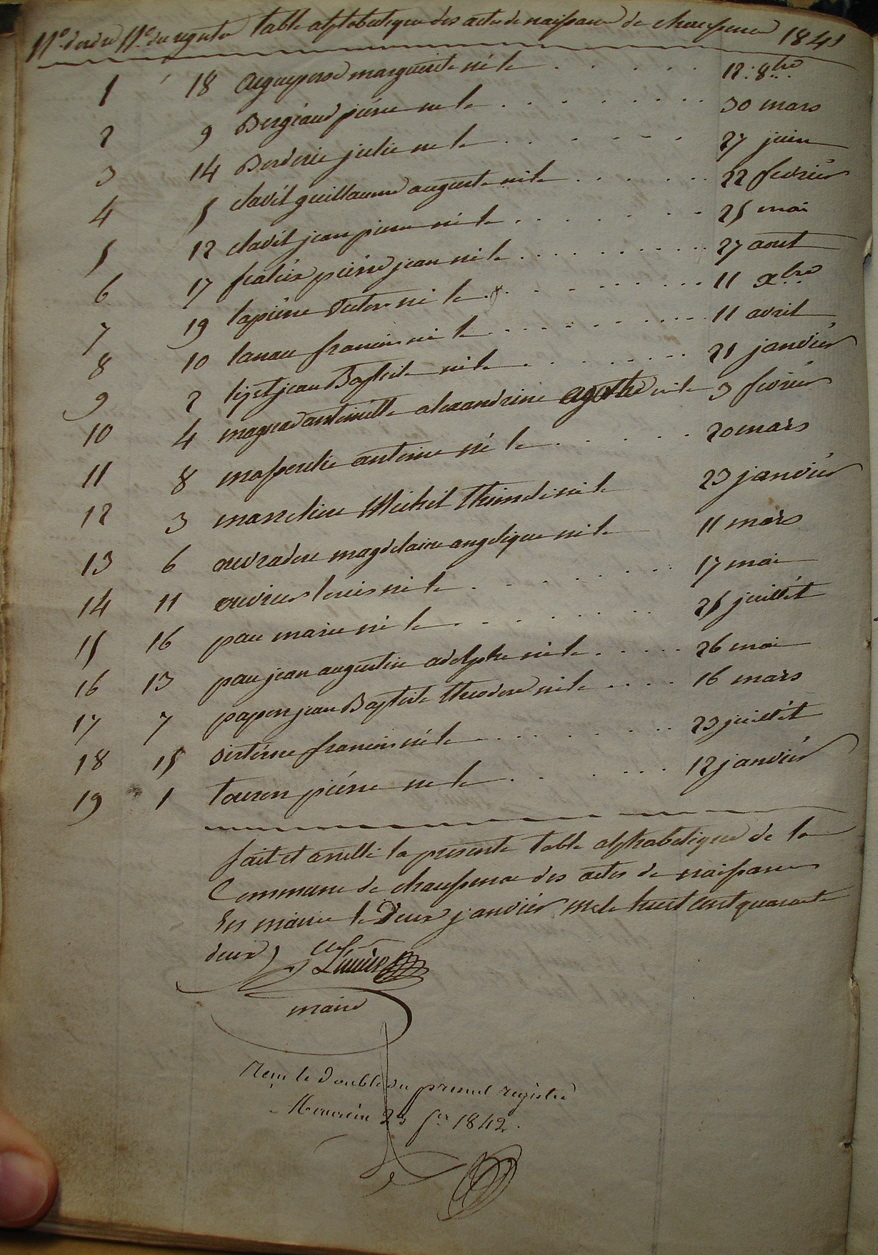 N° d'ordre N° du registre table alphabetique des actes de naissance de chaussenac 1841
1 18 aigueperse marguerite né le . . . . . . 12 8bre
2 9 Bergeaud pierre né le . . . . . . . . 30 mars
3 14 Borderie julie né le . . . . . . 27 juin
4 5 clavit guillaume auguste né le . . . . . . 22 fevrier
5 12 clavit jean pierre né le . . . . . . . . 25 mai
6 17 pierre jean né le . . . . . . . . 27 aout
7 19 lapierre né le . . . . . . . . 11 xbre
8 10 lanau francois né le . . . . . . . . 11 avril
9 2 lizet jean Baptiste né le . . . . . . . 21 janvier
10 4 antoinette alexandrine agathe né le 3 fevrier
11 8 antoine né le . . . . . . 20 mars
12 3 Michel né le 23 janvier
13 6 magdelaine angelique né le 11 mars
14 11 louis né le . . . . . . . . 17 mai
15 16 pau marie né le . . . . . . . . 25 juillet
16 13 pau jean augustin adolphe né le . . . . . 26 mai
17 7 papon jean Baptiste theodore né le . . . . 16 mars
18 15 francois né le . . . . . . . . 23 juillet
19 1 touron pierre né le . . . . . . . 12 janvier
fait et arretté la presente table alphabetique de la
Commune de chaussenac des actes de naissance
En mairie le Deux janvier mil huit cent quarante
deux
maire
le double du present registre
Mauriac 23 1842.